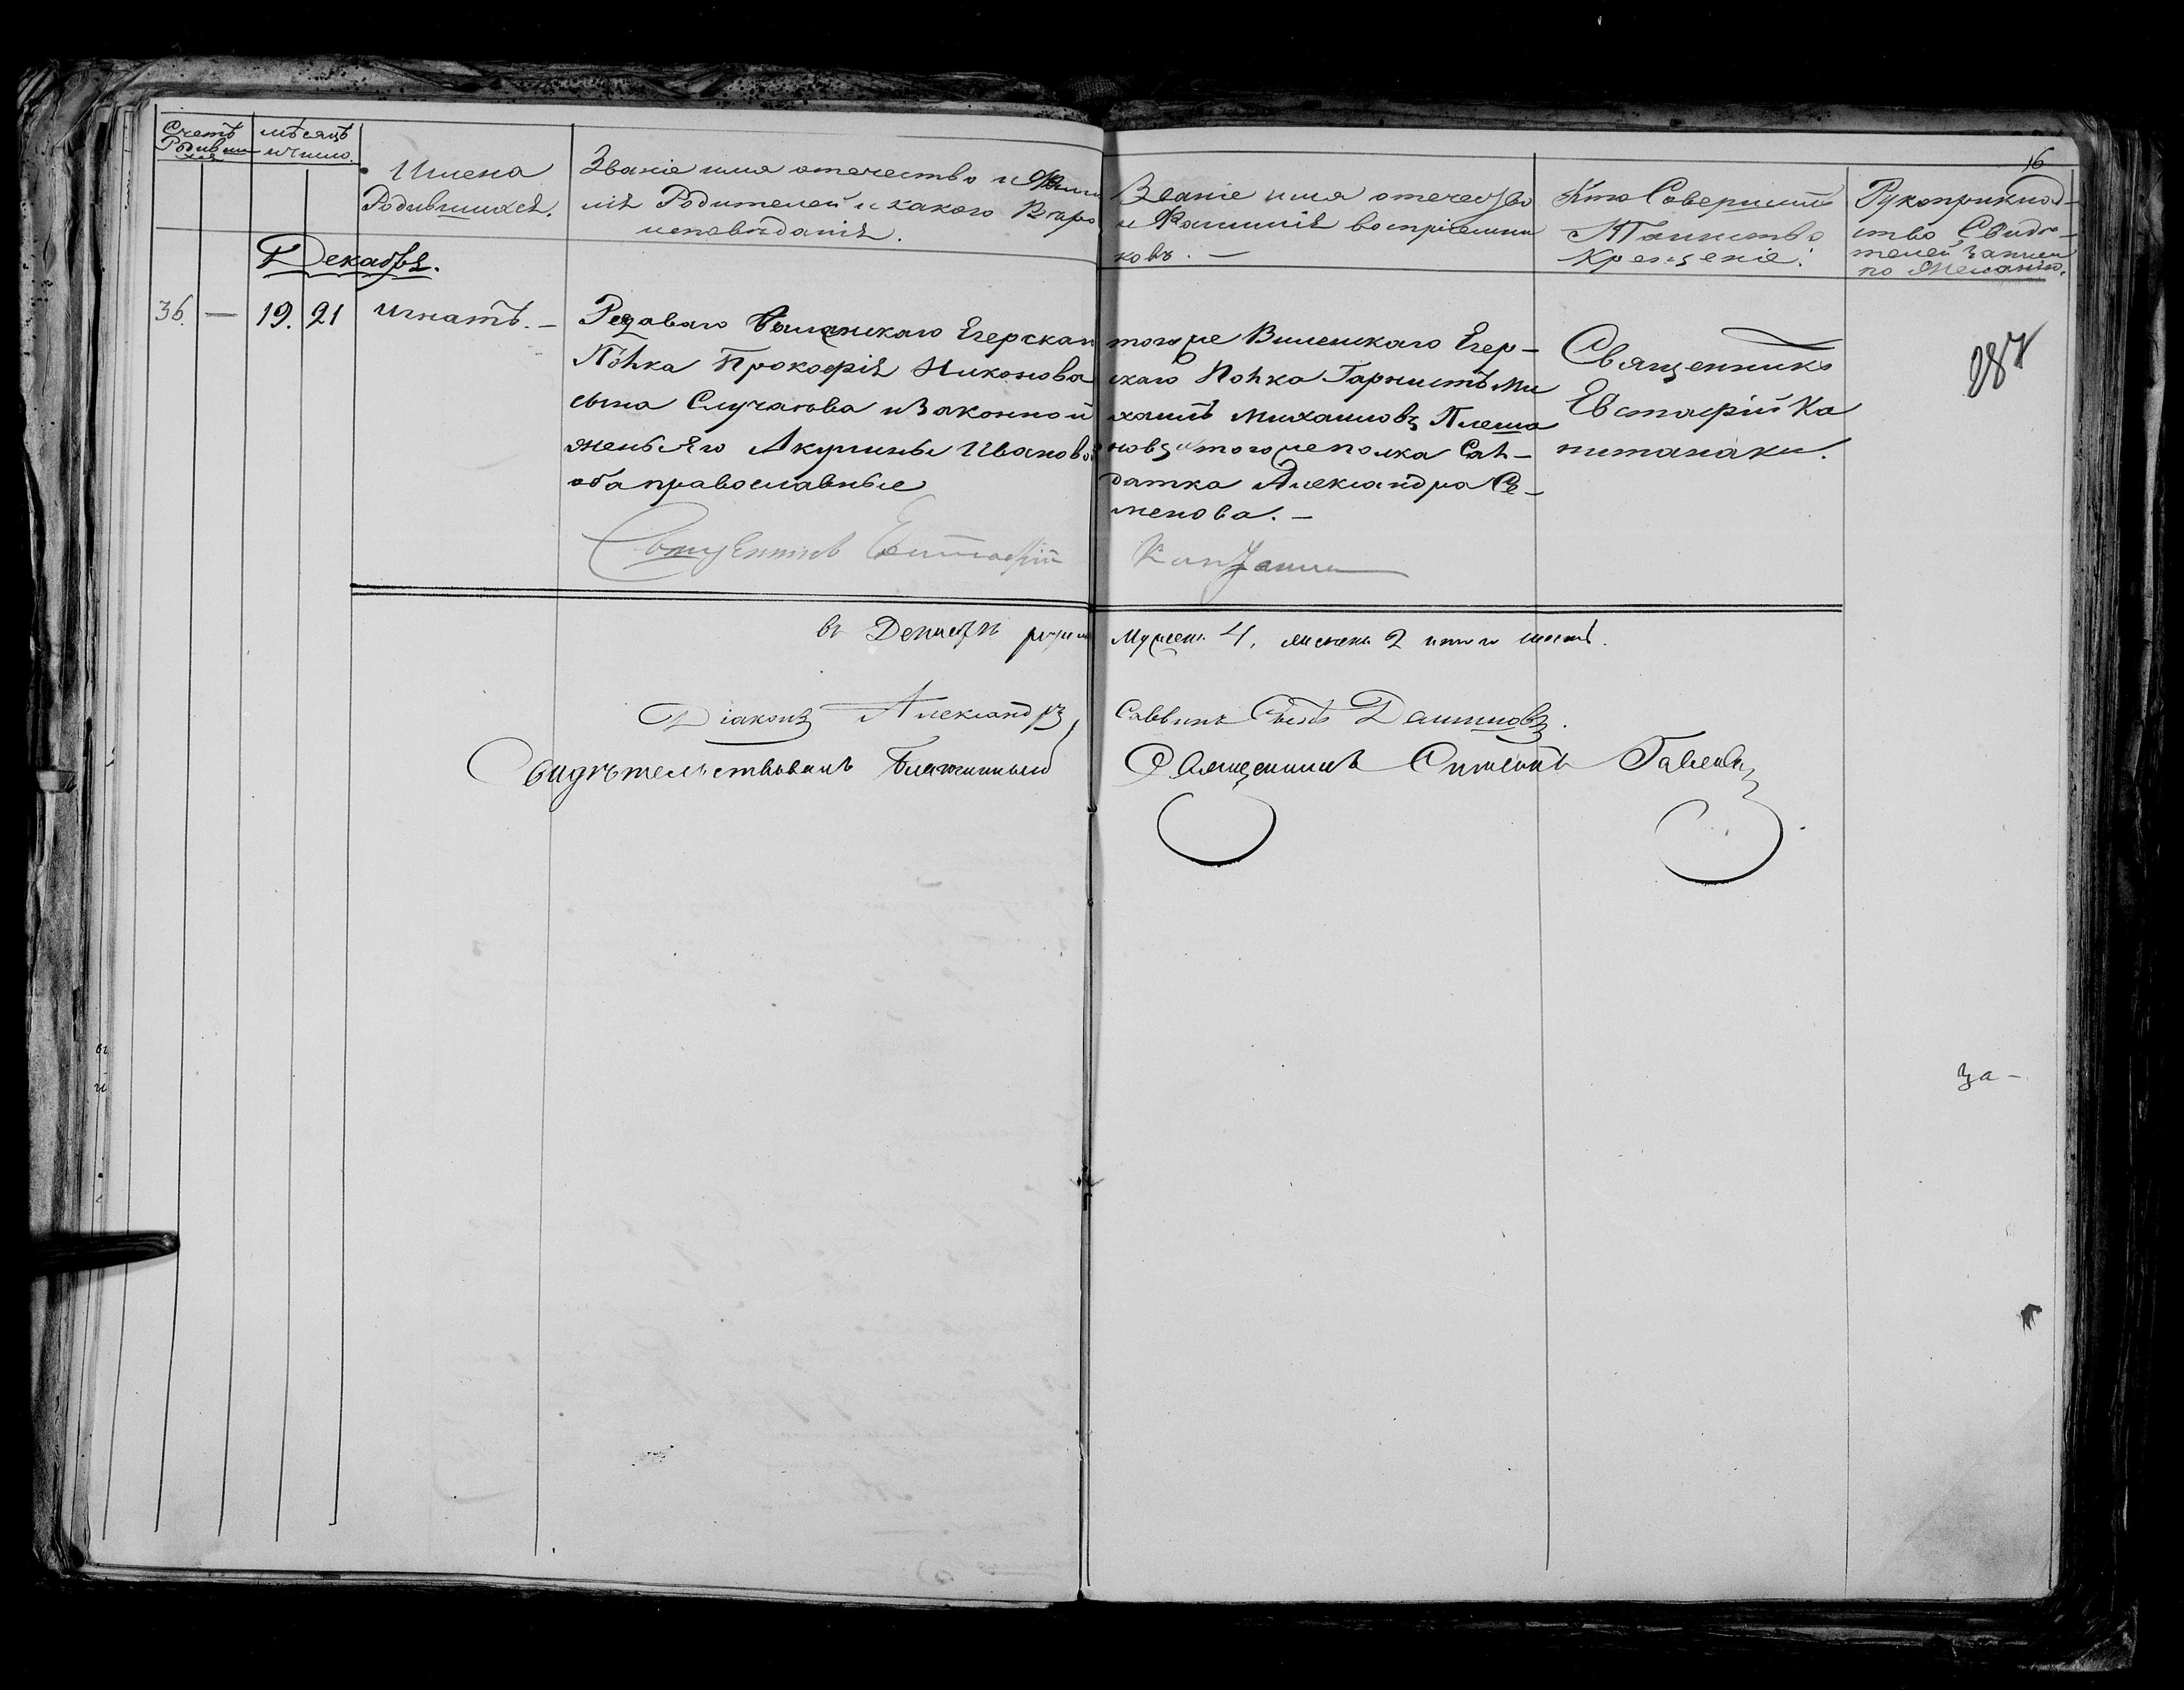 16
Счетъ
Родивши
хся
мѣсяцъ
и число.
Имена
Родившихся.
Званіе имя отечество и Фами
ліе Родителей и какого Вѣро
исповѣданія.
Званіе имя отечество
и Фамиліе воспріемни
ковъ. —
Кто Совершилъ
Таинство
Крещеніе.
Рукоприклад–
ство Свидѣ–
телей записи
по Желанію.
Декабря.
36. — 19. 21 Игнатъ. –
Редоваго Виленскаго Егерскаг
Полка Прокофія Никонова
сына Случаева и Законной
жены Его Акулины Ивановой
оба православные
Священникъ Евстафій
того же Виленскаго Егер–
скаго Полка Гарнистъ Ми
хаилъ Михаиловъ Плеша
новъ и того же полка Сол–
датка Александра Се–
менова. –
Священникъ
Евстафій Ка
питанаки.
287
въ Декабрѣ
Мужеска 4, женска 2 итого шесть.
Діаконъ Александръ
Саввинъ Сынъ Даниловъ.
Свидѣтельствовалъ Благочинный
Священникъ Симеонъ
за –